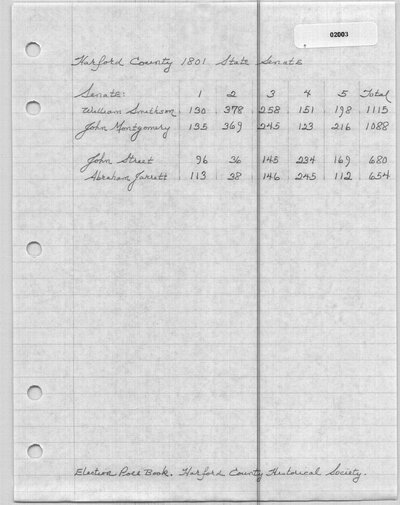 02003
Harford County 1801 State Senate
Senate: 1 2 3 4 5 Total
William Smithson 130 378 258 151 198 1115
John Montgomery 135 369 245 123 216 1088
John Street 96 36 145 234 169 680
Abraham Jarrett 113 38 146 245 112 654
Election Poll Book. Harford County Historical Society.